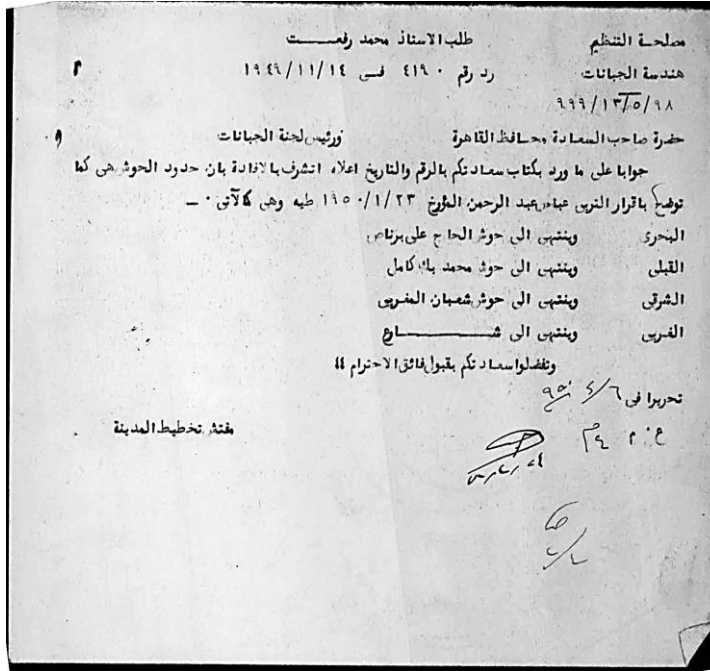 مصلحة التنظيم طلب الاستاذ محمد رفعت
هندسة الجبانات رد رقم ٤١٩٠ فى ١٩٤٩/١١/١٤
٩٩٩/١٣/٥/٩٨
حضرة صاحب السعادة محافظ القاهرة ورئيس لجنة الجبانات
جوابا على ما ورد بكتاب سعادتكم بالرقم والتاريخ اعلاه اتشرف بالافادة بان حدود الحوش هى كما
توضح باقرار التربى عباس عبد الرحمن المؤرخ ١٩٥٠/١/٢٣ طيه وهى كالآتى ٠ ـ
البحرى وينتهى الى حوش الحاج على برناص
القبلى وينتهى الى حوش محمد بك كامل
الشرقى وينتهى الى حوش شعبان المغربى
الغربى وينتهى الى شارع
وتفضلوا سعادتكم بقبول فائق الاحترام ٤٤
تحريرا فى ٦/٤/٩٥٠
مفتش تخطيط المدينة
ع ٠ م